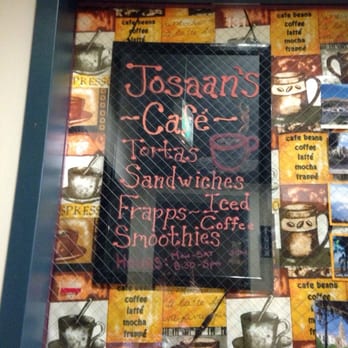 Josaan's
~Café~
Tortas
Sandwiches
Frapps~Iced
Coffee
Smoothies
Hours: Mon-Sat
8:30-5pm
cafe beans
coffee
latté
mocha
frappé
cafe beans
coffee
latté
mocha
frappé
cafe beans
coffee
latté
mocha
frappé
cafe beans
coffee
latté
mocha
frappé
cafe beans
coffee
latté
mocha
frappé